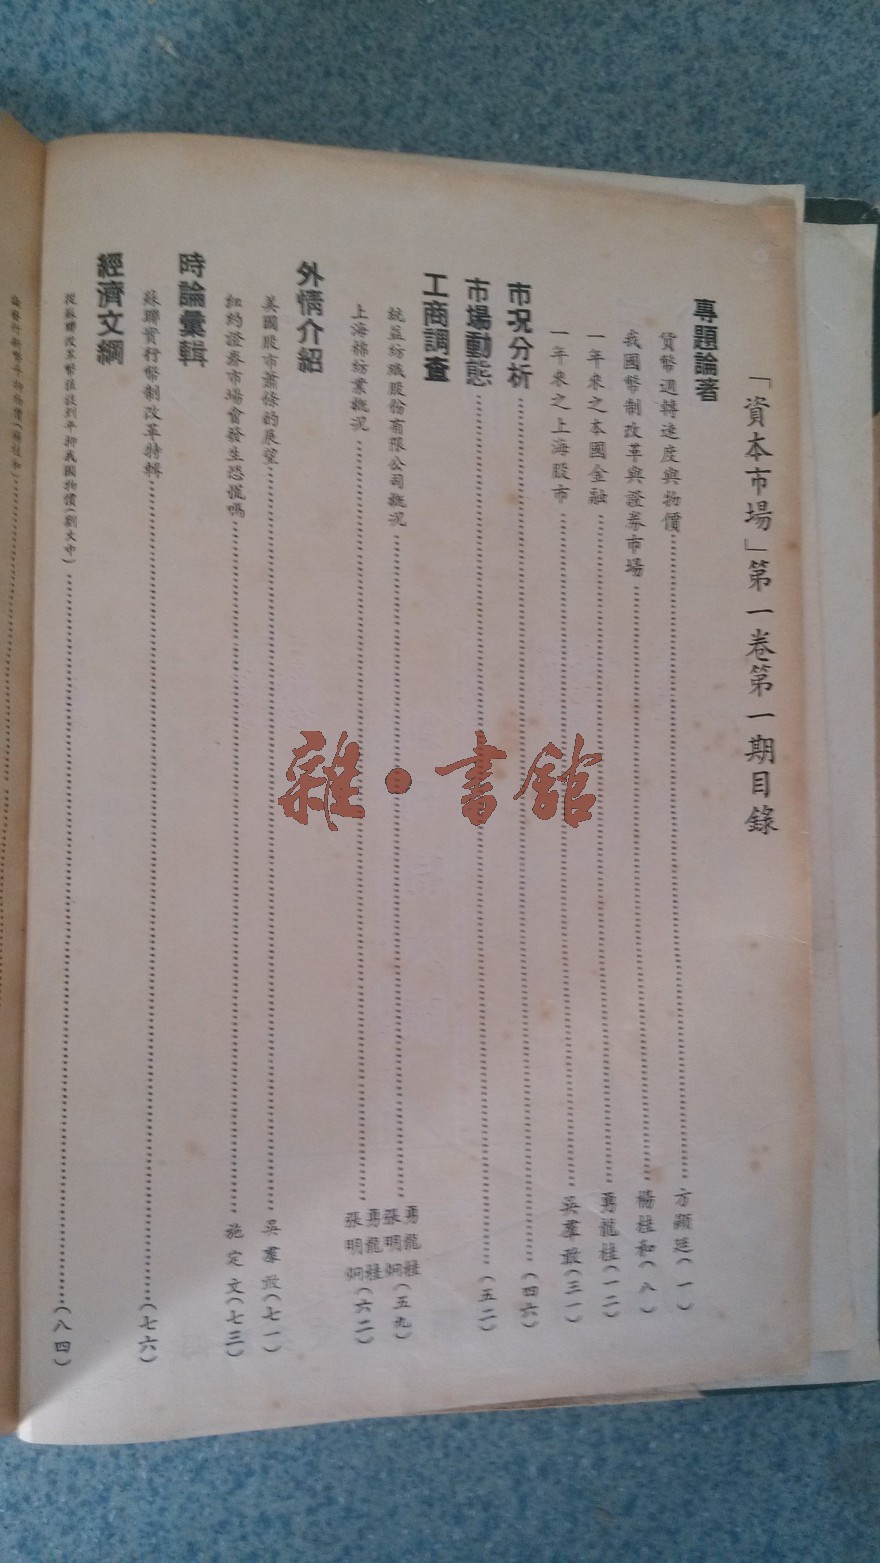 「資本市場」第一卷第一期目錄
專題論著
貨幣週轉速度與物價……方顯廷（一）
我國幣制改革與證券市場……楊桂和（八）
一年來之本國金融……勇龍桂（一二）
一年來之上海股市……吳羣敢（三一）
市况分析……（四六）
市場動態……（五二）
工商調查
統益紡織股份有限公司概况……勇龍桂 張明炯（五九）
上海棉紡業概况……勇龍桂 張明炯（六二）
外情介紹
美國股市蕭條的展望……吳羣敢（七一）
紐約證券市場會發生恐慌嗎……施定文（七三）
時論彙輯
蘇聯實行幣制改革特輯……（七六）
經濟文綱
從蘇聯改革幣值談到平抑我國物價（劉大中）……（八四）
雜·書館